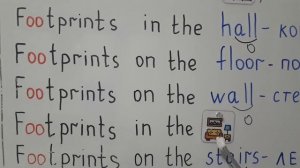 Footprints in the hall - ко
Footprints on the floor - по
Footprints on the wall - сте
Footprints in the
Footprints on the stairs - ле